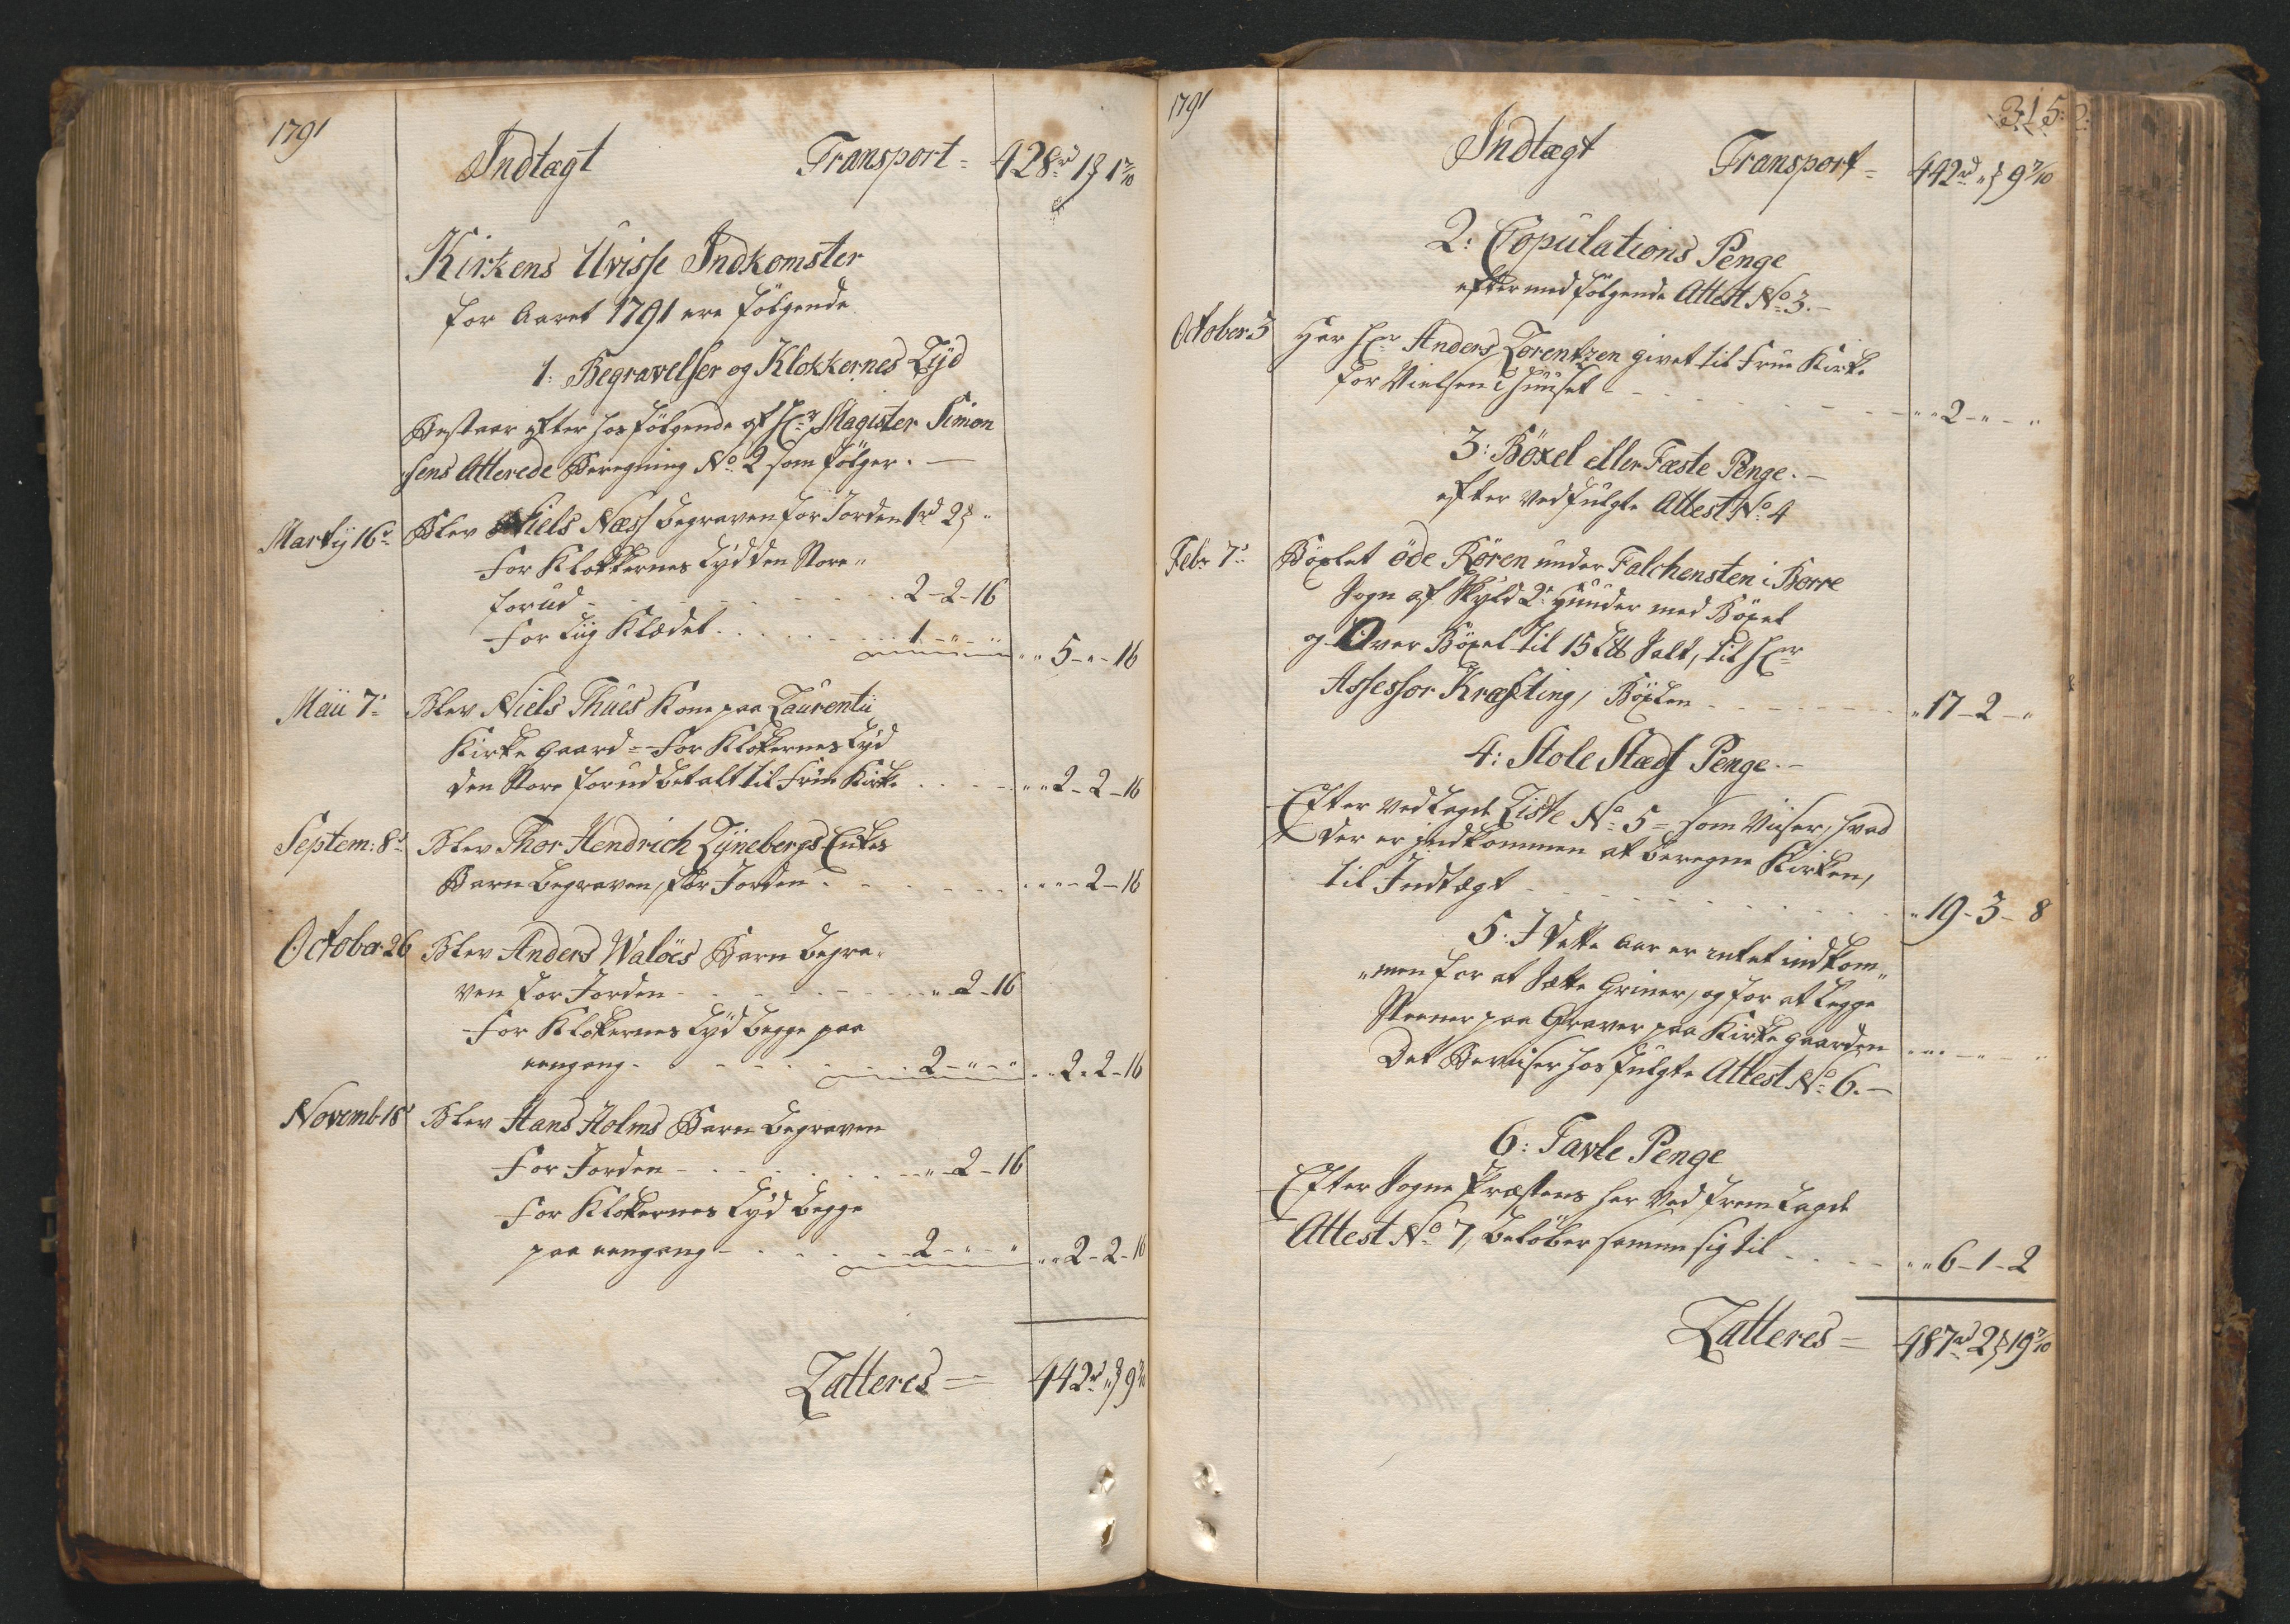 1791
Indtægt Transport = 428rd 1ß 1 7/10
Kirkens Uvisse Indkomster
for Aaret 1791 ere følgende
1: Begravelser og Klokkernes Lyd
Bestaar efter hosfølgende af Hr Magister Simon
sens Atterede Beregning No 2 som følger. —
Martij 16de Blev Niels Næss begraven for Jorden 1rd 2ß "
for Klokkernes Lyd den Store "
forud - - - 2-2-16
for Liig Klædet - - - 1-"-" " " 5-"-16
Maii 7de Blev Niels Thues Kone paa Laurentii
Kirke Gaard = for Klokkernes Lyd
den Store forud betalt til Frue Kirke - - - " " 2-2-16
Septem: 8de Blev Thor Hendrich Lynebergs Enkes
Barn begraven, for Jorden - - - " " - 2-16
October 26 Blev Anders Waløes Barn begra-
ven for Jorden - - - " 2-16
for Klokkernes Lyd begge paa
eengang - - - 2-"-" " " 2-2-16
Novemb 18de Blev Hans Holms Barn begraven
for Jorden - - - " 2-16
for Klokkernes Lyd begge
paa eengang - - - 2-"-" " " 2-2-16
Latteres = 442rd "ß 9 7/10
1791
315:
Indtægt Transport = 442rd "ß 9 7/10
2: Copulations Penge
efter medfølgende Attest No 3. —
October 3 Har Hr Anders Lorentzen givet til Frue Kirke
for Vielsen i Huuset - - - " " 2-"-"
3: Böxel eller Fæste Penge. —
efter vedfulgte Attest No 4
Febr 7de Böxlet öde Rören under Falchensten i Borre
Sogn af Skyld 2de Hunder med Böxel
og Over Böxel til 15 L℔ Salt, til Hr
Assessor Kræfting, Böxlen - - - " 17-2-"
4: Stole Stæds Penge. —
Efter vedlagde Liste No 5 = som Viiser, hvad
der er indkommen at beregne Kirken,
til Indtægt - - - " 19-3-8
5: I dette Aar er intet indkom "
" men for at sætte Griner, og for at legge
Steener paa Graver paa Kirkegaarden
Det Beviiser hosfulgte Attest No 6. — " " " - " - "
6: Tavle Penge
Efter Sogne Præstens her ved fremlagde
Attest No 7, beløber samme sig til - - - " " 6-1-2
Latteres = 487rd 2ß 19 7/10